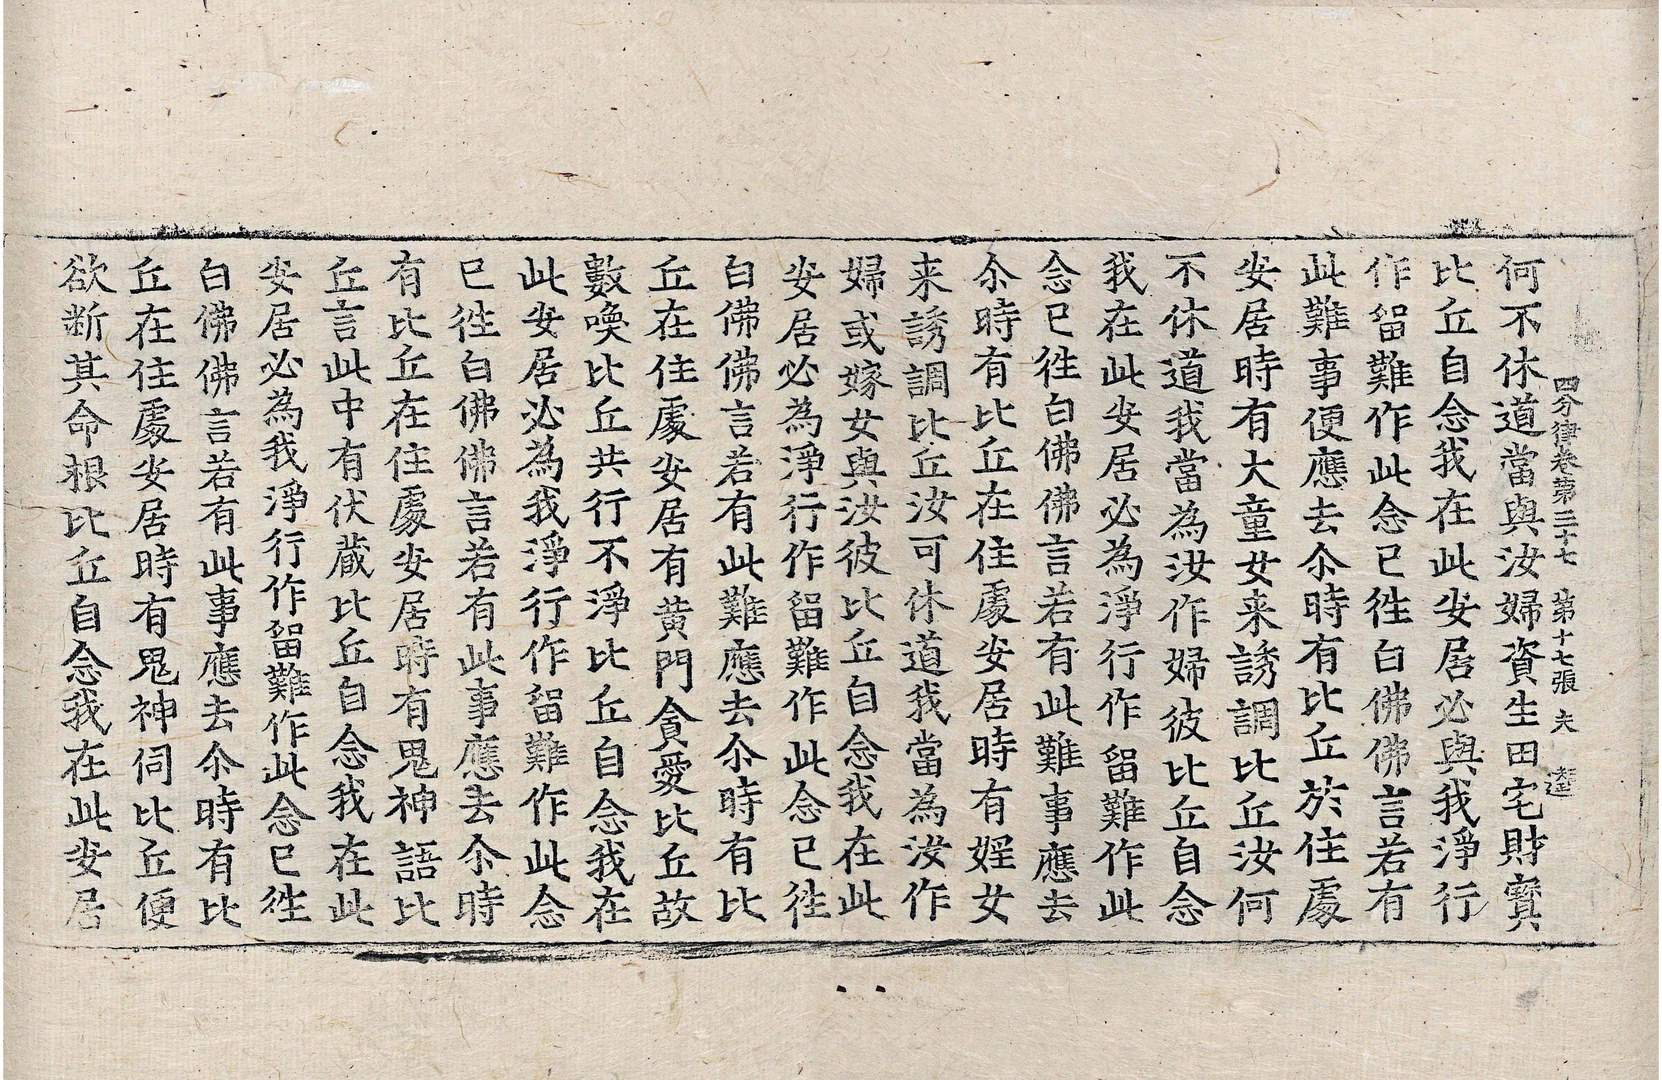 四分律卷第三十七 第十七張 夫
何不休道當與汝婦資生田宅財寳
比丘自念我在此安居必與我淨行
作留難作此念已徃白佛佛言若有
此難事便應去尒時有比丘於住處
安居時有大童女来誘調比丘汝何
不休道我當為汝作婦彼比丘自念
我在此安居必為淨行作留難作此
念已徃白佛佛言若有此難事應去
尒時有比丘在住處安居時有婬女
来誘調比丘汝可休道我當為汝作
婦或嫁女與汝彼比丘自念我在此
安居必為淨行作留難作此念已徃
白佛佛言若有此難應去尒時有比
丘在住處安居有黄門貪愛比丘故
數喚比丘共行不淨比丘自念我在
此安居必為我淨行作留難作此念
已徃白佛佛言若有此事應去尒時
有比丘在住處安居時有鬼神語比
丘言此中有伏蔵比丘自念我在此
安居必為我淨行作留難作此念已徃
白佛佛言若有此事應去尒時有比
丘在住處安居時有鬼神伺比丘便
欲断其命根比丘自念我在此安居